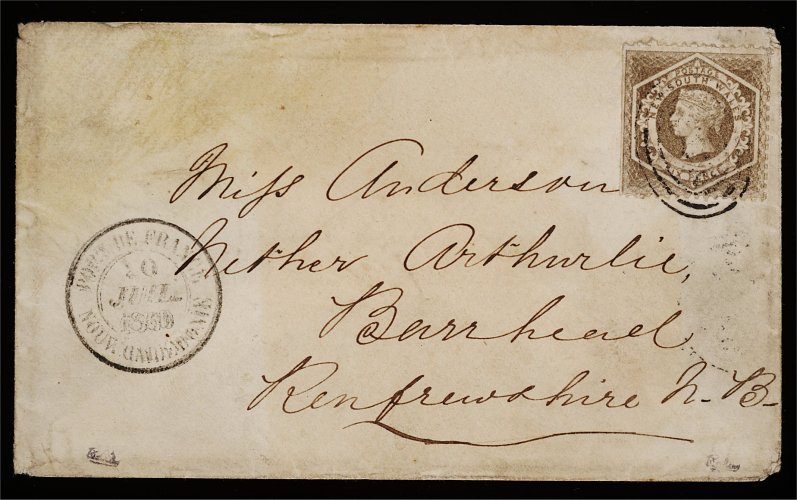 POSTAGE
NEW SOUTH WALES
Miss Anderson
Nether Arthurlie,
Barrhead
Renfrewshire N.B.
PORT DE FRANCE
10
JUIL.
NOUVELLE CALEDONIE